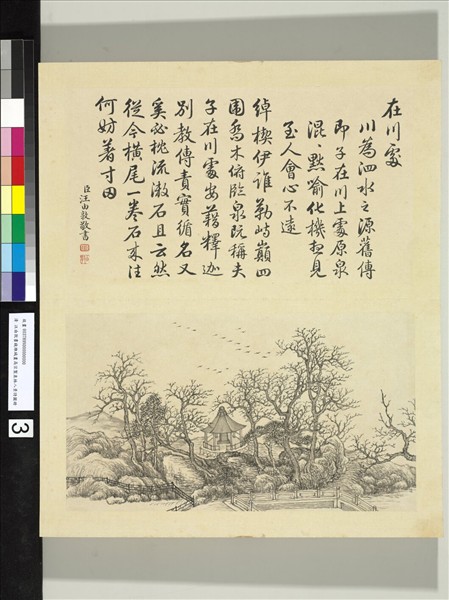 在川處
川為泗水之源舊傳
即子在川上處原泉
混〻點喻化機想見
至人會心不遠
綽楔伊誰勒岵巔四
圍喬木俯臨泉既稱夫
子在川處安藉釋迦
別教傳責實循名又
奚必枕流漱石且云然
從今橫尾一卷石來往
何妨著寸田
臣汪由敦敬書
3